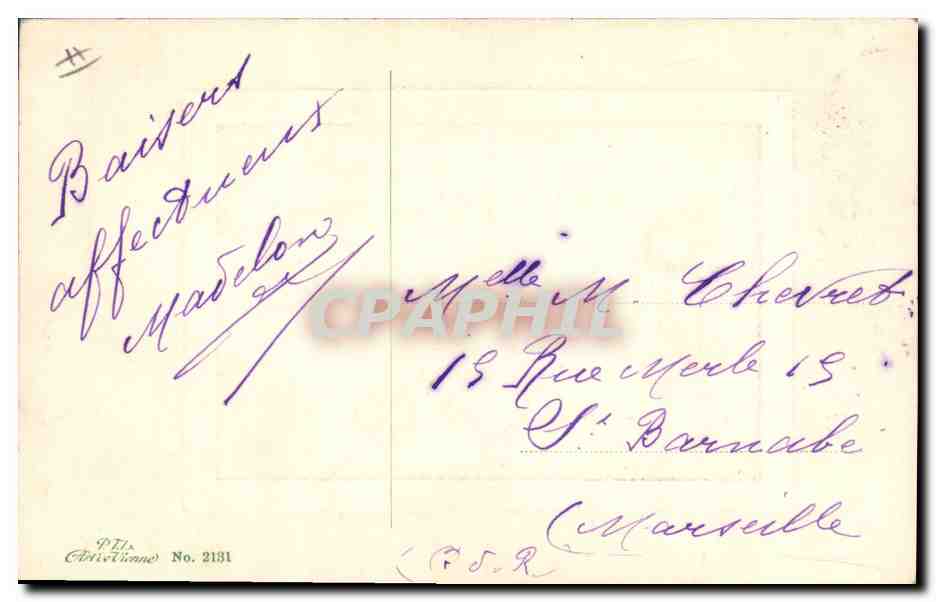 Baisers
affectueux
Madelon
Melle M. Chevret
15 Rue Merle 15
St Barnabé
(Marseille
(B.d.R
CPAPHIL
No. 2131